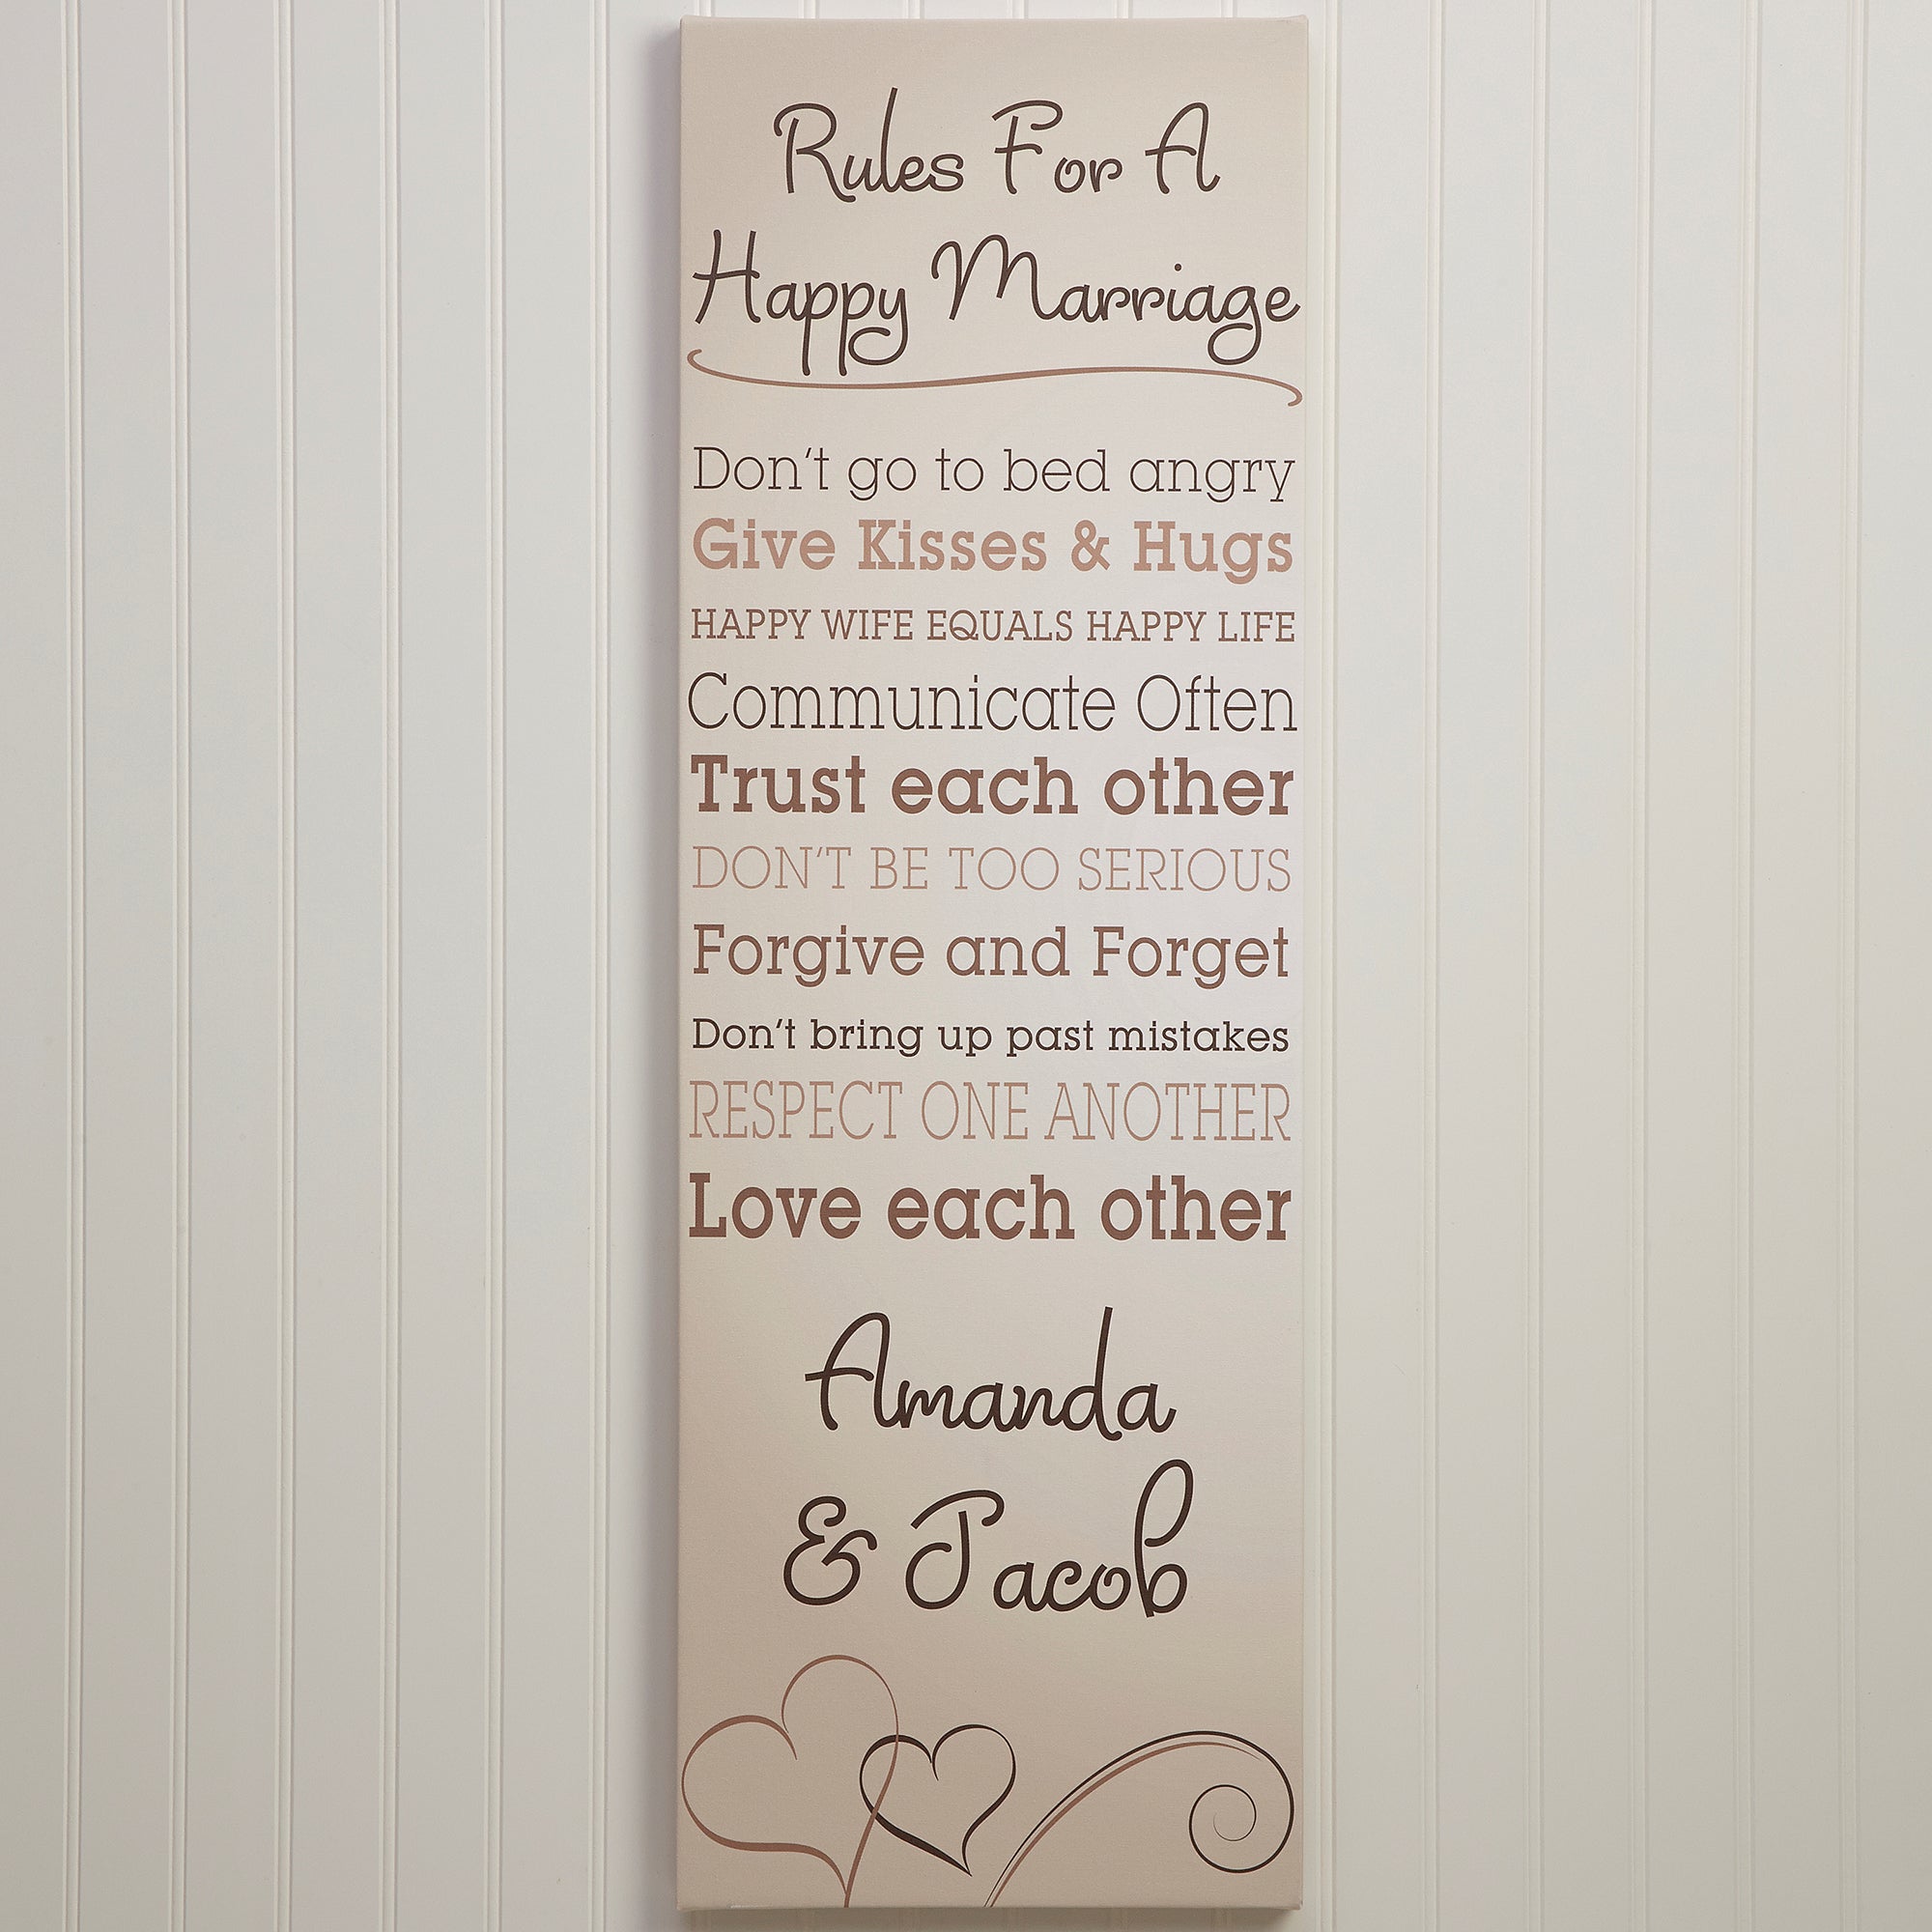 Rules For A
Happy Marriage
Don't go to bed angry
Give Kisses & Hugs
HAPPY WIFE EQUALS HAPPY LIFE
Communicate Often
Trust each other
DON'T BE TOO SERIOUS
Forgive and Forget
Don't bring up past mistakes
RESPECT ONE ANOTHER
Love each other
Amanda
& Jacob